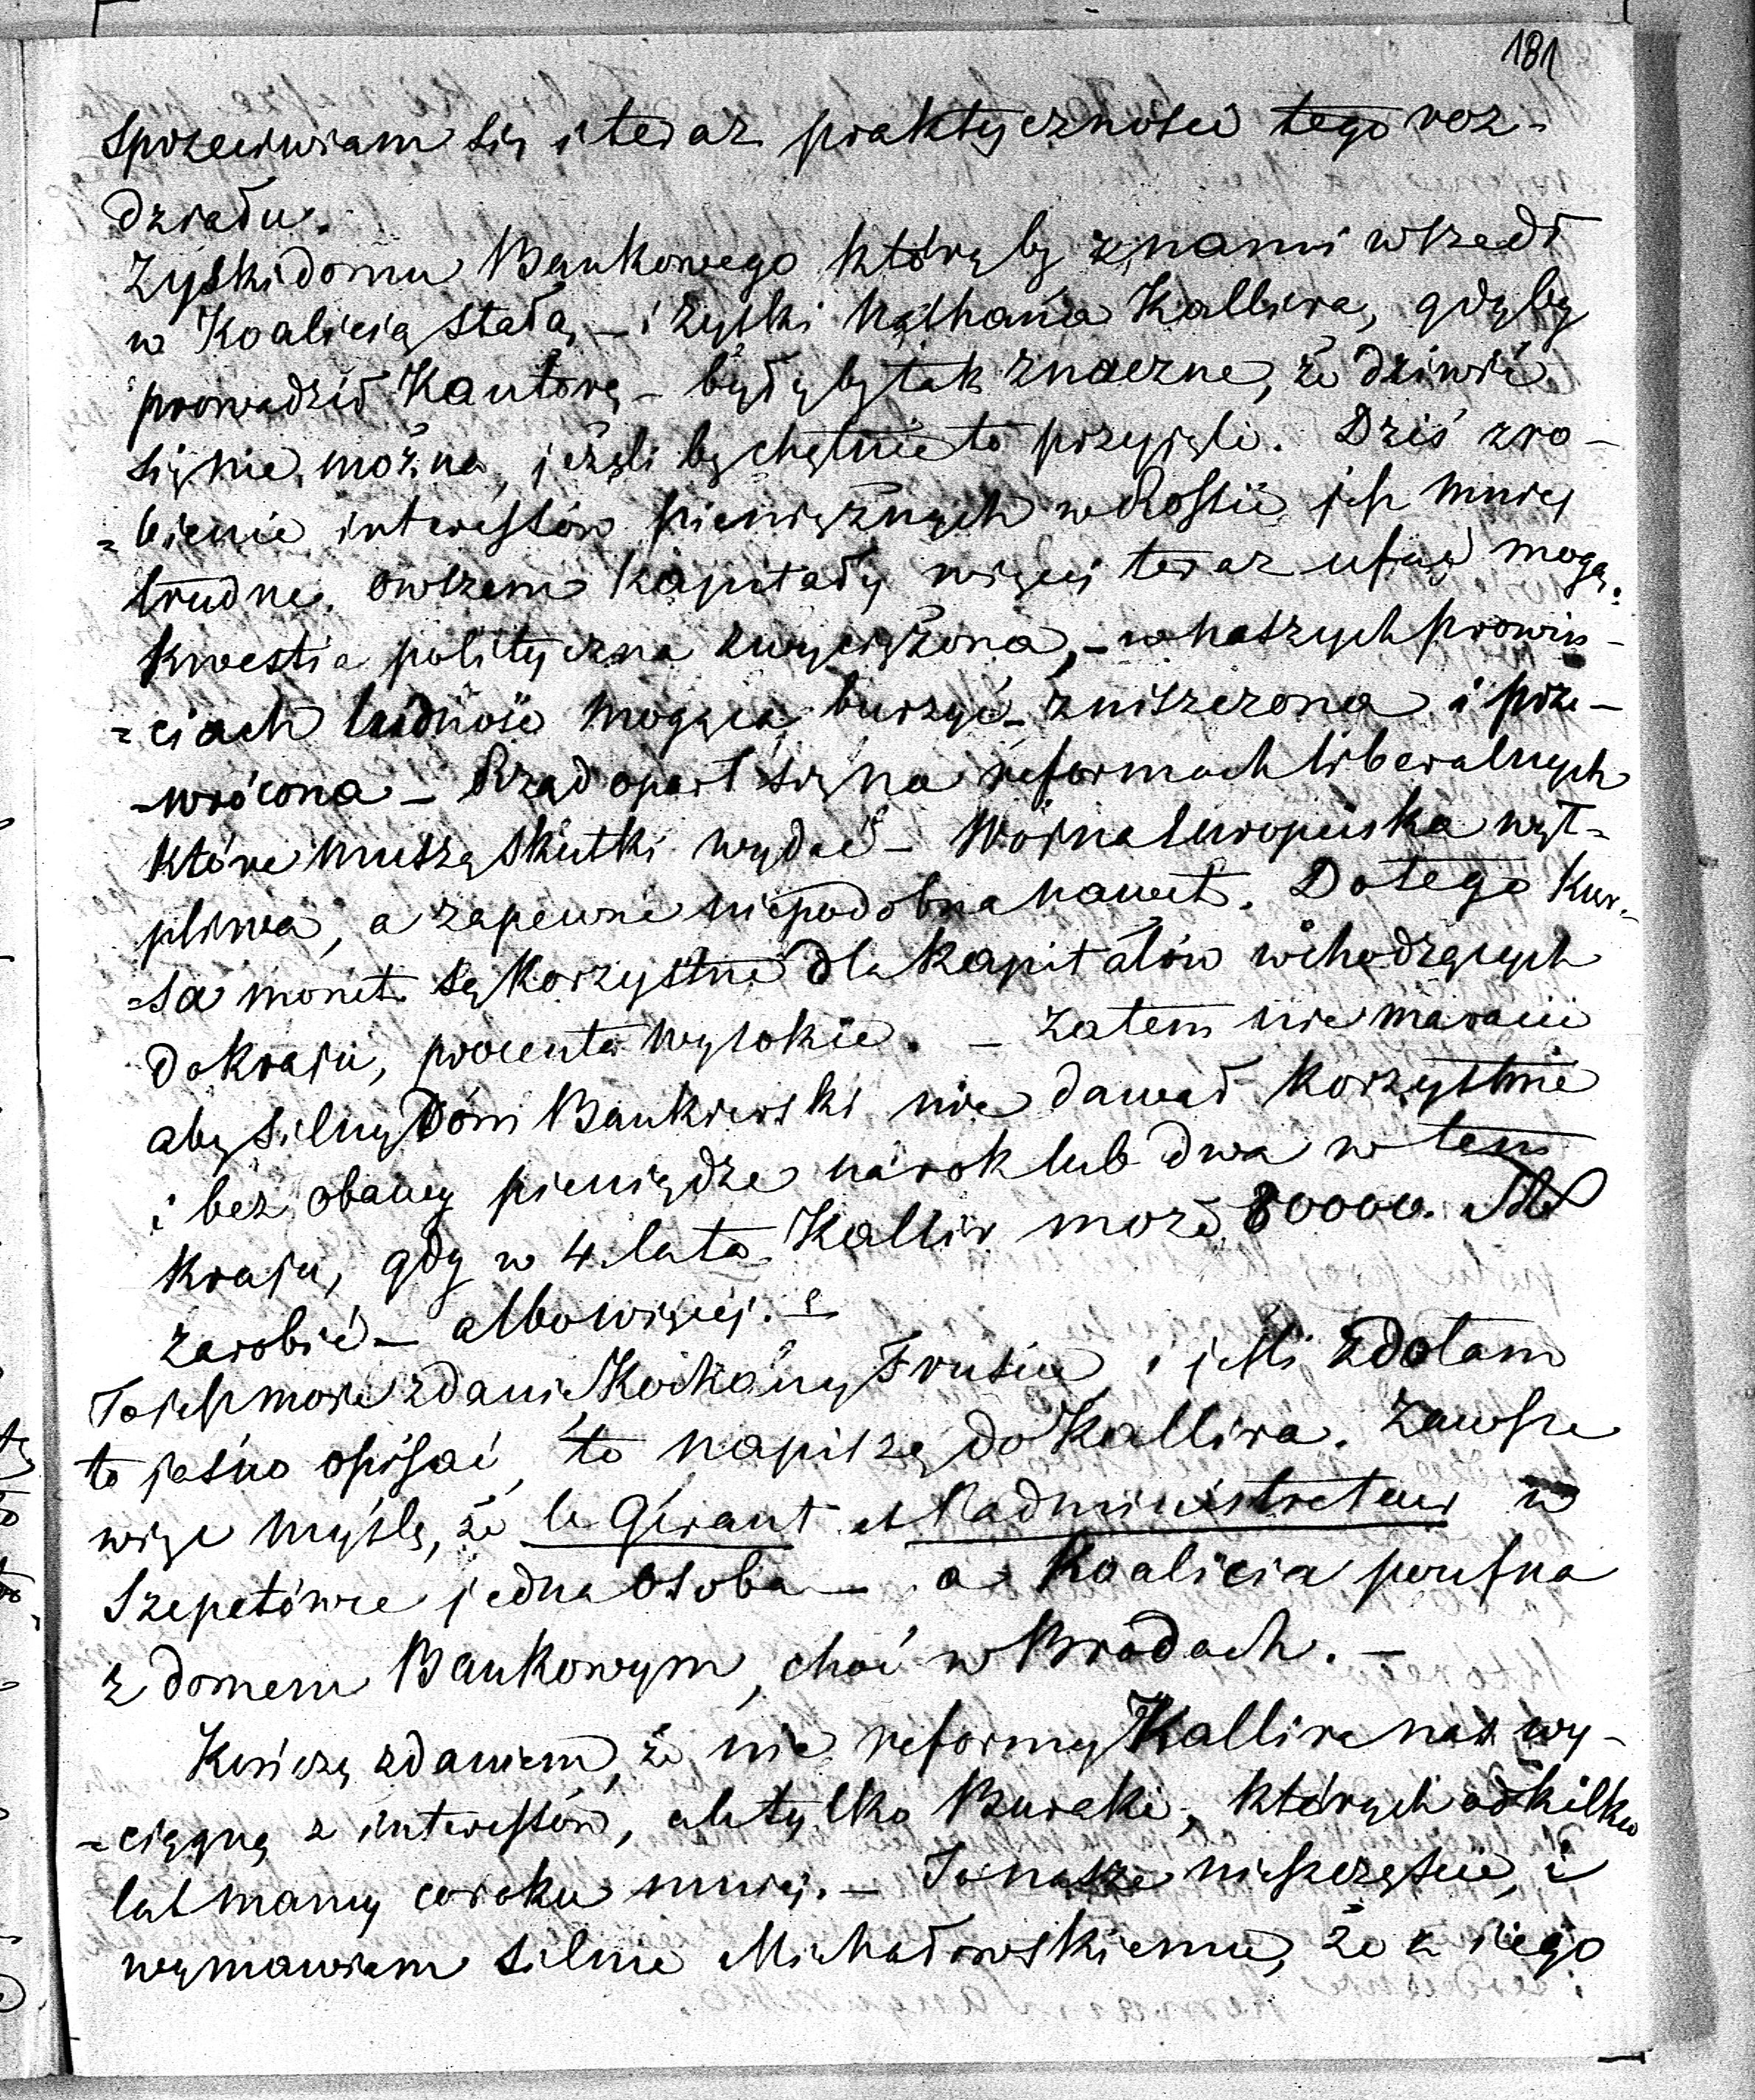 181
sprzeciwiam się i teraz praktyczności tego roz-
działu.
Zyski domu Bankowego któryby z nami wszedł
w Koalicią stałą, – i zyski Nathana Kallira, gdyby
prowadził Kantorę – byłyby tak znaczne, że dziwić
się nie można, jeżeli by chętnie to przyjęli. Dziś zro-
=bienie interessów pieniężnych w Rossii jest mniej
trudne. owszem kapitały więcej teraz ufać mogą.
Kwestia polityczna zwyciężona, – w naszych prowin-
=ciach ludność mogąca burzyć – zniszczona i prze-
-wrócona – Rząd oparł się na reformach liberalnych
które muszą skutki wydać – Wojna Europejska wąt=
pliwa, a zapewne niepodobna nawet. Do tego Kur-
=sa monet są korzystne dla kapitałów wchodzących
do kraju, procenta wysokie. – Zatem nie maracii
aby silny Dom Bankierski nie dawał korzystnie
i bez obawy pieniądze na rok lub dwa w tem
kraju, gdy w 4. lata Kallir może 80000.
zarobić – albo więcej. –
To jest moje zdanie Kochany Trusiu i jeśli zdołam
to jasno opisać, to napiszę do Kallira. Zawsze
więc myślę, że le Gérant et l'administrateur w
Szepetówce jedna osoba – a Koalicia poufna
z domem Bankowym, choć w Brodach. –
Kończę zdaniem, że nie reformy Kallira nas wy-
=ciągną z interessów, ale tylko Buraki, których od kilku
lat mamy co roku mniej. – To nasze nieszczęście, i
wymawiam silnie Michałowskiemu, że z jego